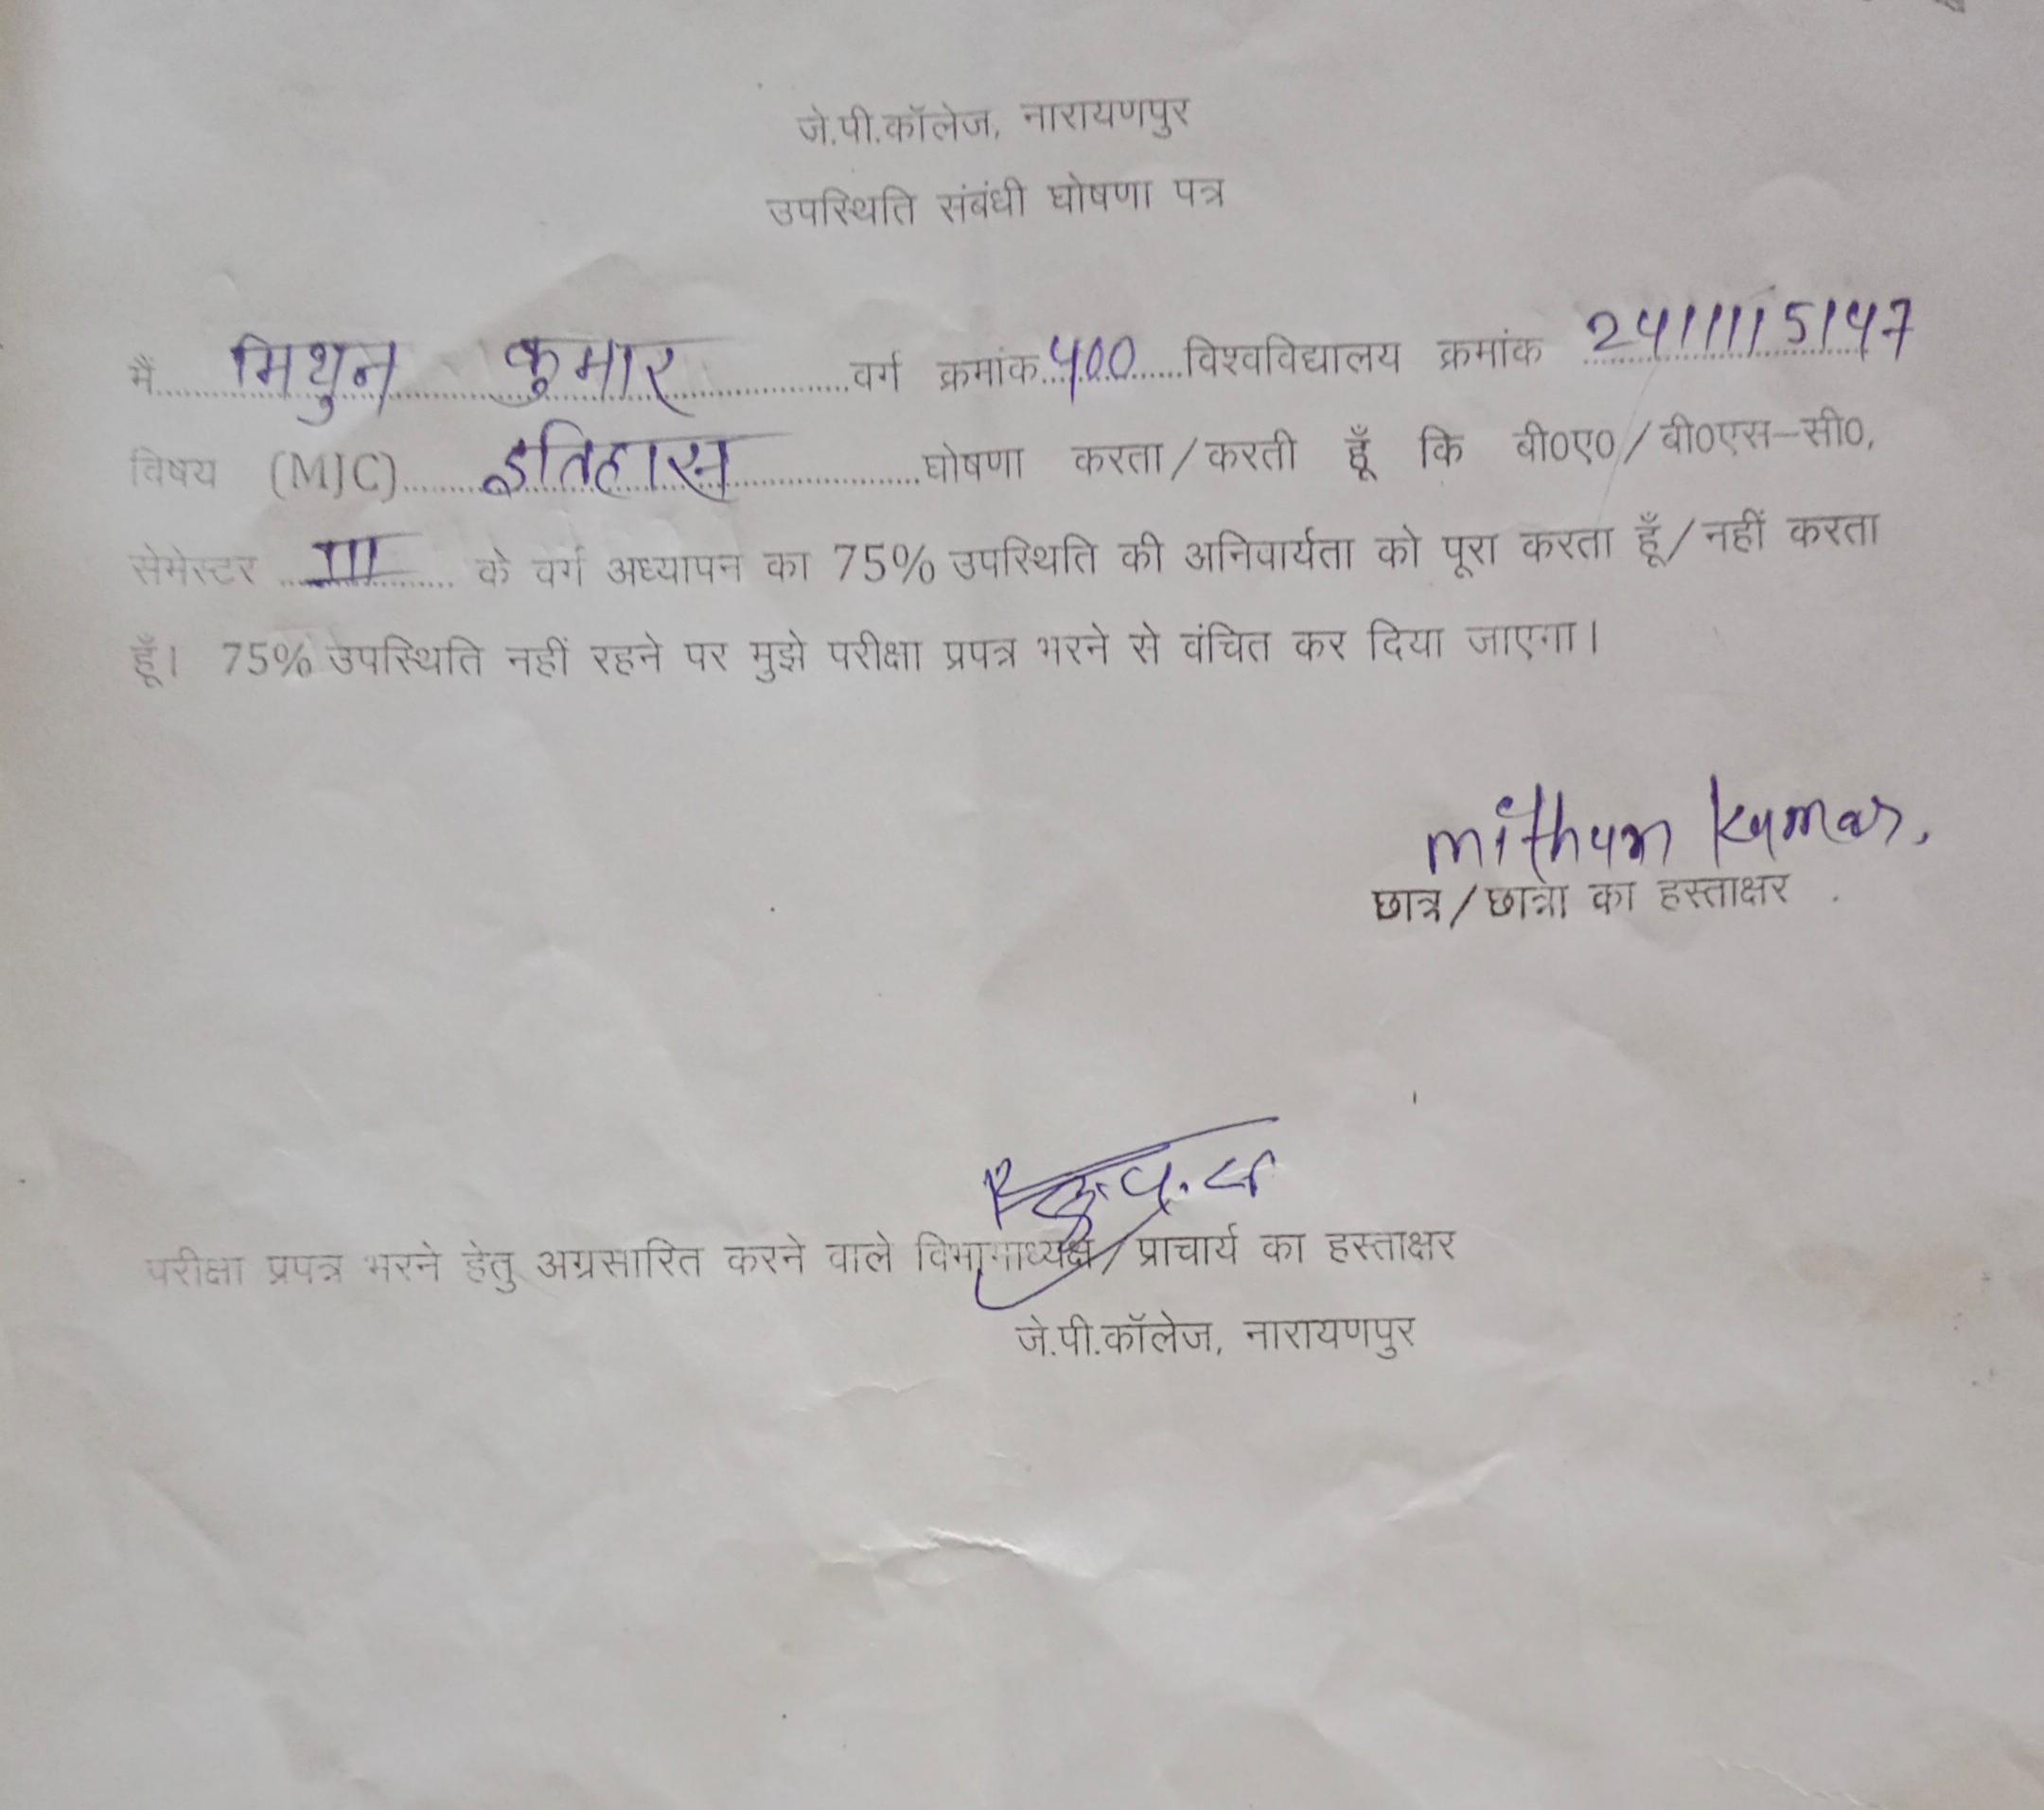 जे.पी.कॉलेज, नारायणपुर
उपस्थिति संबंधी घोषणा पत्र
मैं मिथुन कुमार वर्ग क्रमांक 400 विश्वविद्यालय क्रमांक 2411115147
विषय (MJC) इतिहास घोषणा करता/करती हूँ कि बी0ए0/बी0एस-सी0,
सेमेस्टर III के वर्ग अध्यापन का 75% उपस्थिति की अनिवार्यता को पूरा करता हूँ/नहीं करता
हूँ। 75% उपस्थिति नहीं रहने पर मुझे परीक्षा प्रपत्र भरने से वंचित कर दिया जाएगा।
mithun kumar.
छात्र/छात्रा का हस्ताक्षर
परीक्षा प्रपत्र भरने हेतु अग्रसारित करने वाले विभागाध्यक्ष/प्राचार्य का हस्ताक्षर
जे.पी.कॉलेज, नारायणपुर